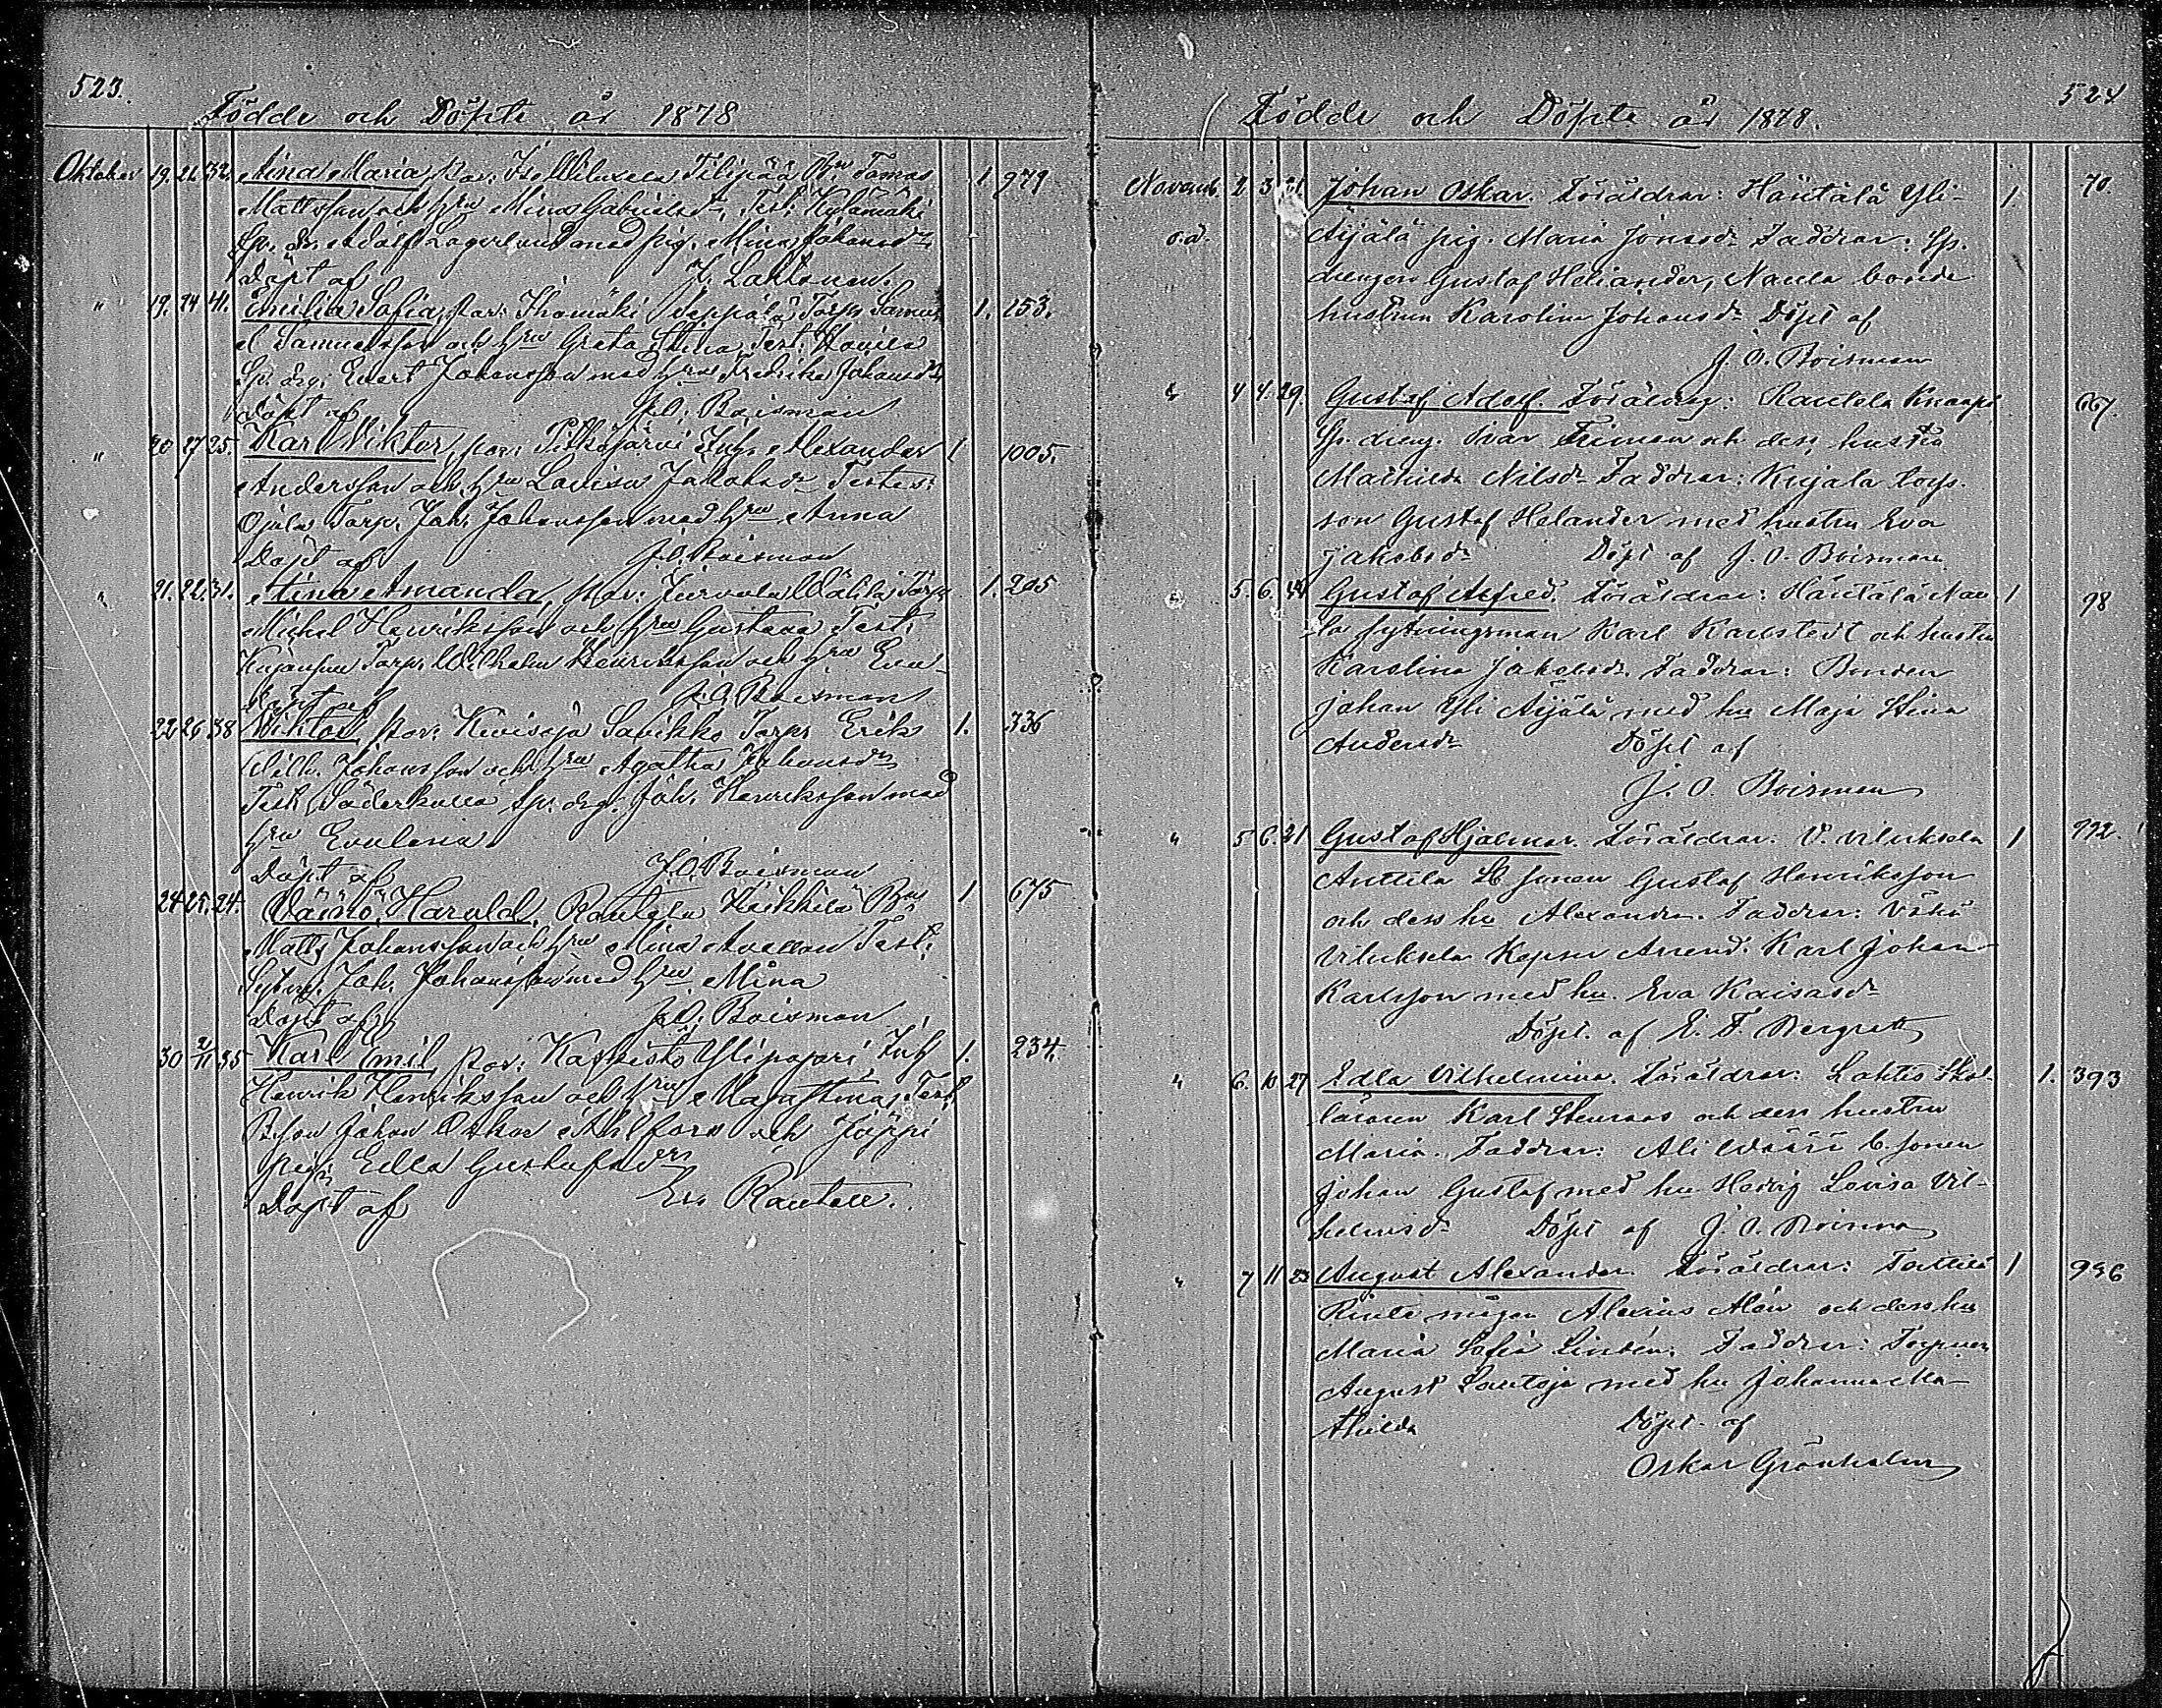 523.
Födde och Döpte år 1878
Oktober 19. 22. 32. Aina Maria, par: Filipää Bn Tomas 1. 979
Mattsson och hru Mina Gabrielsdr, Test: Kylämäki
Sp. dr. Adolf Lagerlund med pig. Mina Johansdr
Döpt af J. Lahtonen.
" 19. 24 41. Emilia Sofia, par: Ihamäki Seppälä Torpr Samu- 1. 153.
el Samuelsson och hru Greta Stina, Test:
Sp. drg: Evert Johansson med hru Fredrika Johansdr
Döpt af J.O. Boisman
" 20 27 25. Karl Viktor, par: Pitkäjärvi Inh. Alexander 1 1005.
Andersson och hru Lovisa Jakobsdr Testes:
Ojala Torpr. Joh. Johansson med hru Anna
Döpt af J.O. Boisman
" 21. 22. 31. Aina Amanda, par: Jurvala Torpr 1. 205
Mickel Henriksson och hru Gustava Test:
Torpr. Wilhelm Henriksson och hru Eva
Döpt af J.O. Boisman
22 26 38 Wiktor, par: Kivisoja Savikko Torpr Erik 1. 336
Wilh. Johansson och hru Agatha Johansdr
Test. Söderkulla Sp. drg. Joh. Henriksson med
hru Evalena
Döpt af J.O. Boisman
24 25. 24. Väinö Harald, Rautela Heikkilä Bn 1 675
Matts Johansson och hru Mina Test:
Sytning. Joh. Johansson med hru Mina
Döpt af J.O. Boisman
30 2/11 35 Karl Emil, par: Kaskisto Ylipajari, Inh 1. 234.
Henrik Henriksson och hru Maja Stina, Test:
B.son Johan Oskar Ahlfors och Jäppi
pig: Edla Gustafsdr
Döpt af Es. Rautell.
524
Födde och Döpte år 1878.
Novemb. 2 3 21 Johan Oskar. Föräldrar: Häntälä Yli- 1 70.
o.ä. Äijälä pig. Maria Jonasdr Faddrar: Sp.
drengen Gustaf Heliander, Naula bonde
hustrun Karolina Johansdr Döpt af
J. O. Boisman
" 4 4. 29. Gustaf Adolf. Föräldrar: Rautela Knaapi 667.
Sp. dreng. Ivar Friman och dess hustru
Mathilda Nilsdr Faddrar: Kirjala torp.
son Gustaf Helander med hustru Eva
Jakobsdr Döpt af J. O. Boisman
" 5. 6. 44 Gustaf Alfred. Föräldrar: Häntälä Nau- 1 98
la sytningsman Karl Karlstedt och hustru
Karolina Jakobsdr Faddrar: Bonden
Johan Yli Äijälä med hu Maja Stina
Andersdr Döpt af
J. O. Boisman
" 5 6. 21 Gustaf Hjalmar. Föräldrar: V. Viluksela 1 992.
Anttila B. sonen Gustaf Henriksson
och dess hu Alexandra. Faddrar: Vähä
Viluksela Arrend. Karl Johan
Karlsson med hu. Eva Kaisasdr
Döpt. af E. F. Bergroth
" 6. 10 27 Edla Vilhelmina. Föräldrar: Lahtis Skol- 1. 393
läraren Karl Stenroos och dess hustru
Maria. Faddrar: Ali Wääri B. sonen
Johan Gustaf med hu Hedvig Lovisa Vil-
helmsdr Döpt af J. O. Boisman
" 7 11 23 August Alexander. Föräldrar: Tattila 1 996
Rinte mågen Alexius Alén och dess hu
Maria Sofia Lindén. Faddrar: Torparen
August Lautoja med hu Johanna Ma-
thilda Döpt af
Oskar Grönholm